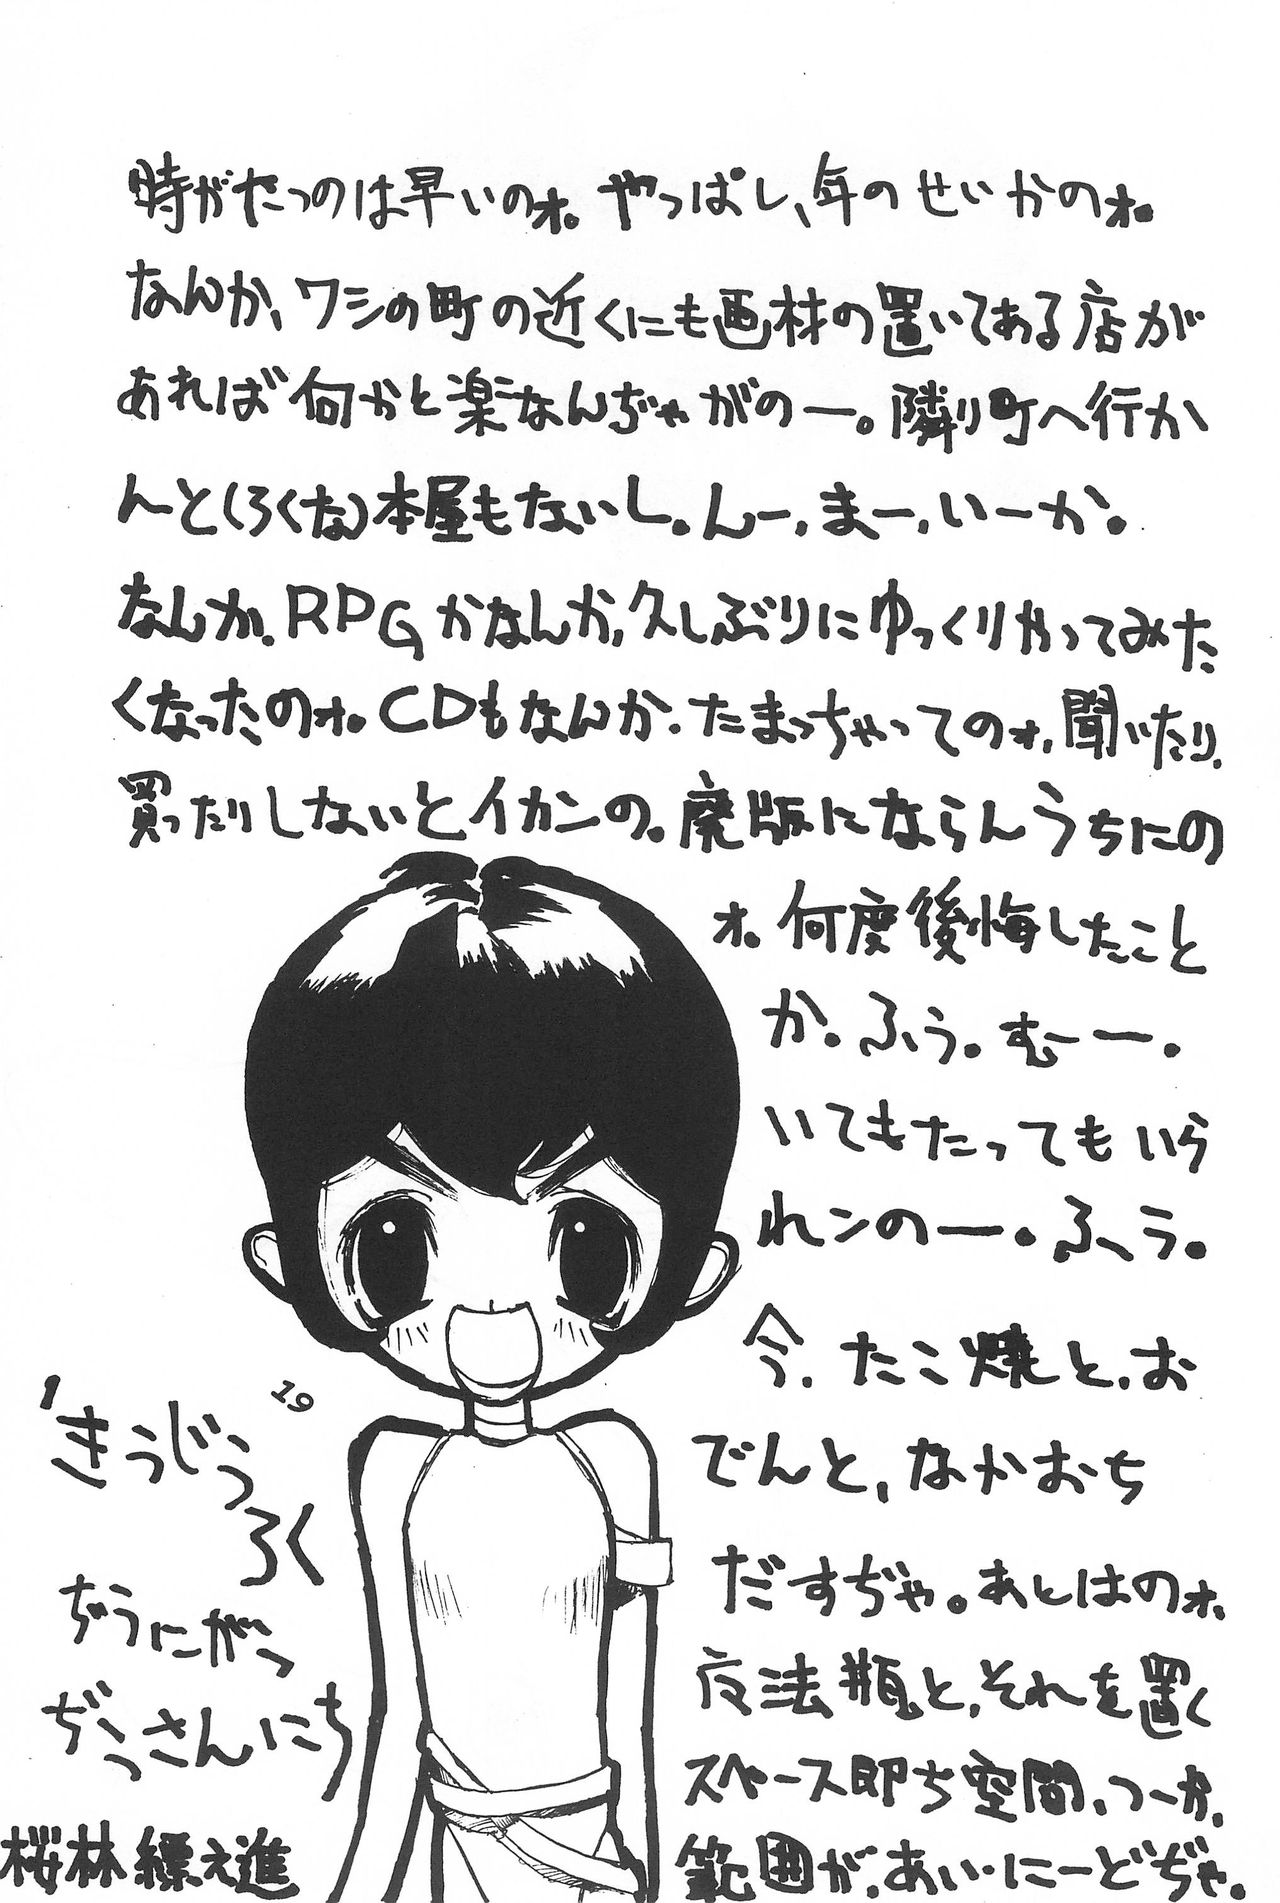 時がたつのは早いのォ。やっぱし、年のせいかのォ。
なんか、ワシの町の近くにも画材の置いてある店が
あれば何かと楽なんぢゃがのー。隣り町へ行か
んとろくな本屋もないし。んー、まー、いーか。
なんか。RPGかなんか、久しぶりにゆっくりやってみた
くなったのォ。CDもなんか、たまっちゃってのォ、聞いたり、
買ったりしないとイカンの。廃版にならんうちにの
ォ。何度後悔したこと
か。ふぅ。むーー。
いてもたってもいら
れンのー。ふぅ。
今、たこ焼と、お
でんと、なかおち
だすぢゃ。あとはのォ、
魔法瓶と、それを置く
スペース即ち空間、つーか、
範囲が、あい・にーどぢゃ。
19
'きうじう
ろく
ぢうにがつ
ぢうさんにち
桜林 進